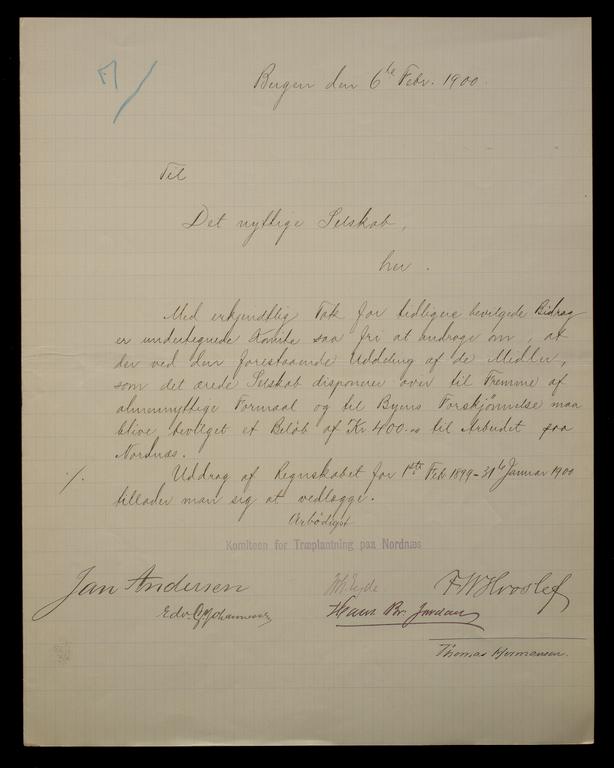 Bergen den 6te Febr. 1900.
Til
Det nyttige Selskab,
her.
Med erkjendtlig Tak for tidligere bevilgede Bidrag
er undertegnede Komite saa fri at androge om, at
der ved den forestaaende Uddeling af de Midler,
som det ærede Selskab disponerer over til Fremme af
almennyttige Formaal og til Byens Forskjønnelse maa
blive bevilget et Beløb af Kr 400.- til Arbeidet paa
Nordnæs.
./. Uddrag af Regnskabet for 1ste Feb 1899 - 31te Januar 1900
tillader man sig at vedlægge.
Arbødigst
Komiteen for Træplantning paa Nordnæs
Jan Andersen F W Hvoslef
Edv. G. Johannesen Hans Br. Jordan
Thomas Hermansen.